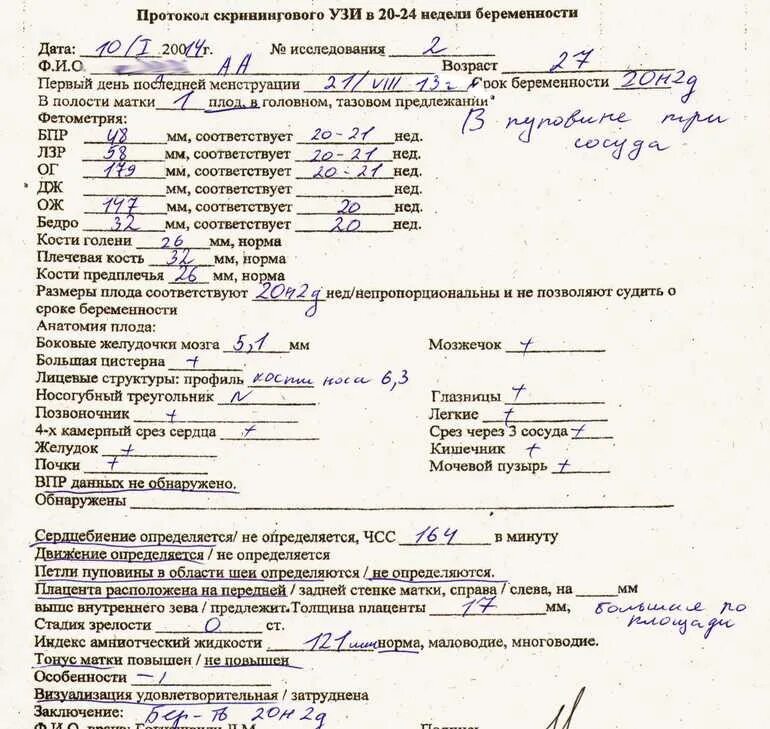 Протокол скринингового УЗИ в 20-24 недели беременности
Дата: 10/I 20014г. № исследования 2
Ф.И.О АА Возраст 27
Первый день последней менструации 21/VIII 13г Срок беременности 20н2д
В полости матки 1 плод, в головном, тазовом предлежании
Фетометрия:
В пуповине три сосуда
БПР 48 мм, соответствует 20-21 нед.
ЛЗР 58 мм, соответствует 20-21 нед.
ОГ 179 мм, соответствует 20-21 нед.
ДЖ мм, соответствует нед.
ОЖ 147 мм, соответствует 20 нед.
Бедро 32 мм, соответствует 20 нед.
Кости голени 26 мм, норма
Плечевая кость 32 мм, норма
Кости предплечья 26 мм, норма
Размеры плода соответствуют 20н2д нед/непропорциональны и не позволяют судить о
сроке беременности
Анатомия плода:
Боковые желудочки мозга 5,1 мм Мозжечок +
Большая цистерна +
Лицевые структуры: профиль кости носа 6,3
Носогубный треугольник N Глазницы +
Позвоночник + Легкие +
4-х камерный срез сердца + Срез через 3 сосуда +
Желудок + Кишечник +
Почки + Мочевой пузырь +
ВПР данных не обнаружено.
Обнаружены
Сердцебиение определяется/ не определяется, ЧСС 164 в минуту
Движение определяется / не определяется
Петли пуповины в области шеи определяются / не определяются.
Плацента расположена на передней / задней стенке матки, справа / слева, на мм
выше внутреннего зева / предлежит. Толщина плаценты 17 мм, большая по площади
Стадия зрелости 0 ст.
Индекс амниотческий жидкости 121 мм норма, маловодие, многоводие.
Тонус матки повышен / не повышен
Особенности –
Визуализация удовлетворительная / затруднена
Заключение: Бер-ть 20н2д
Ф.И.О. врача: